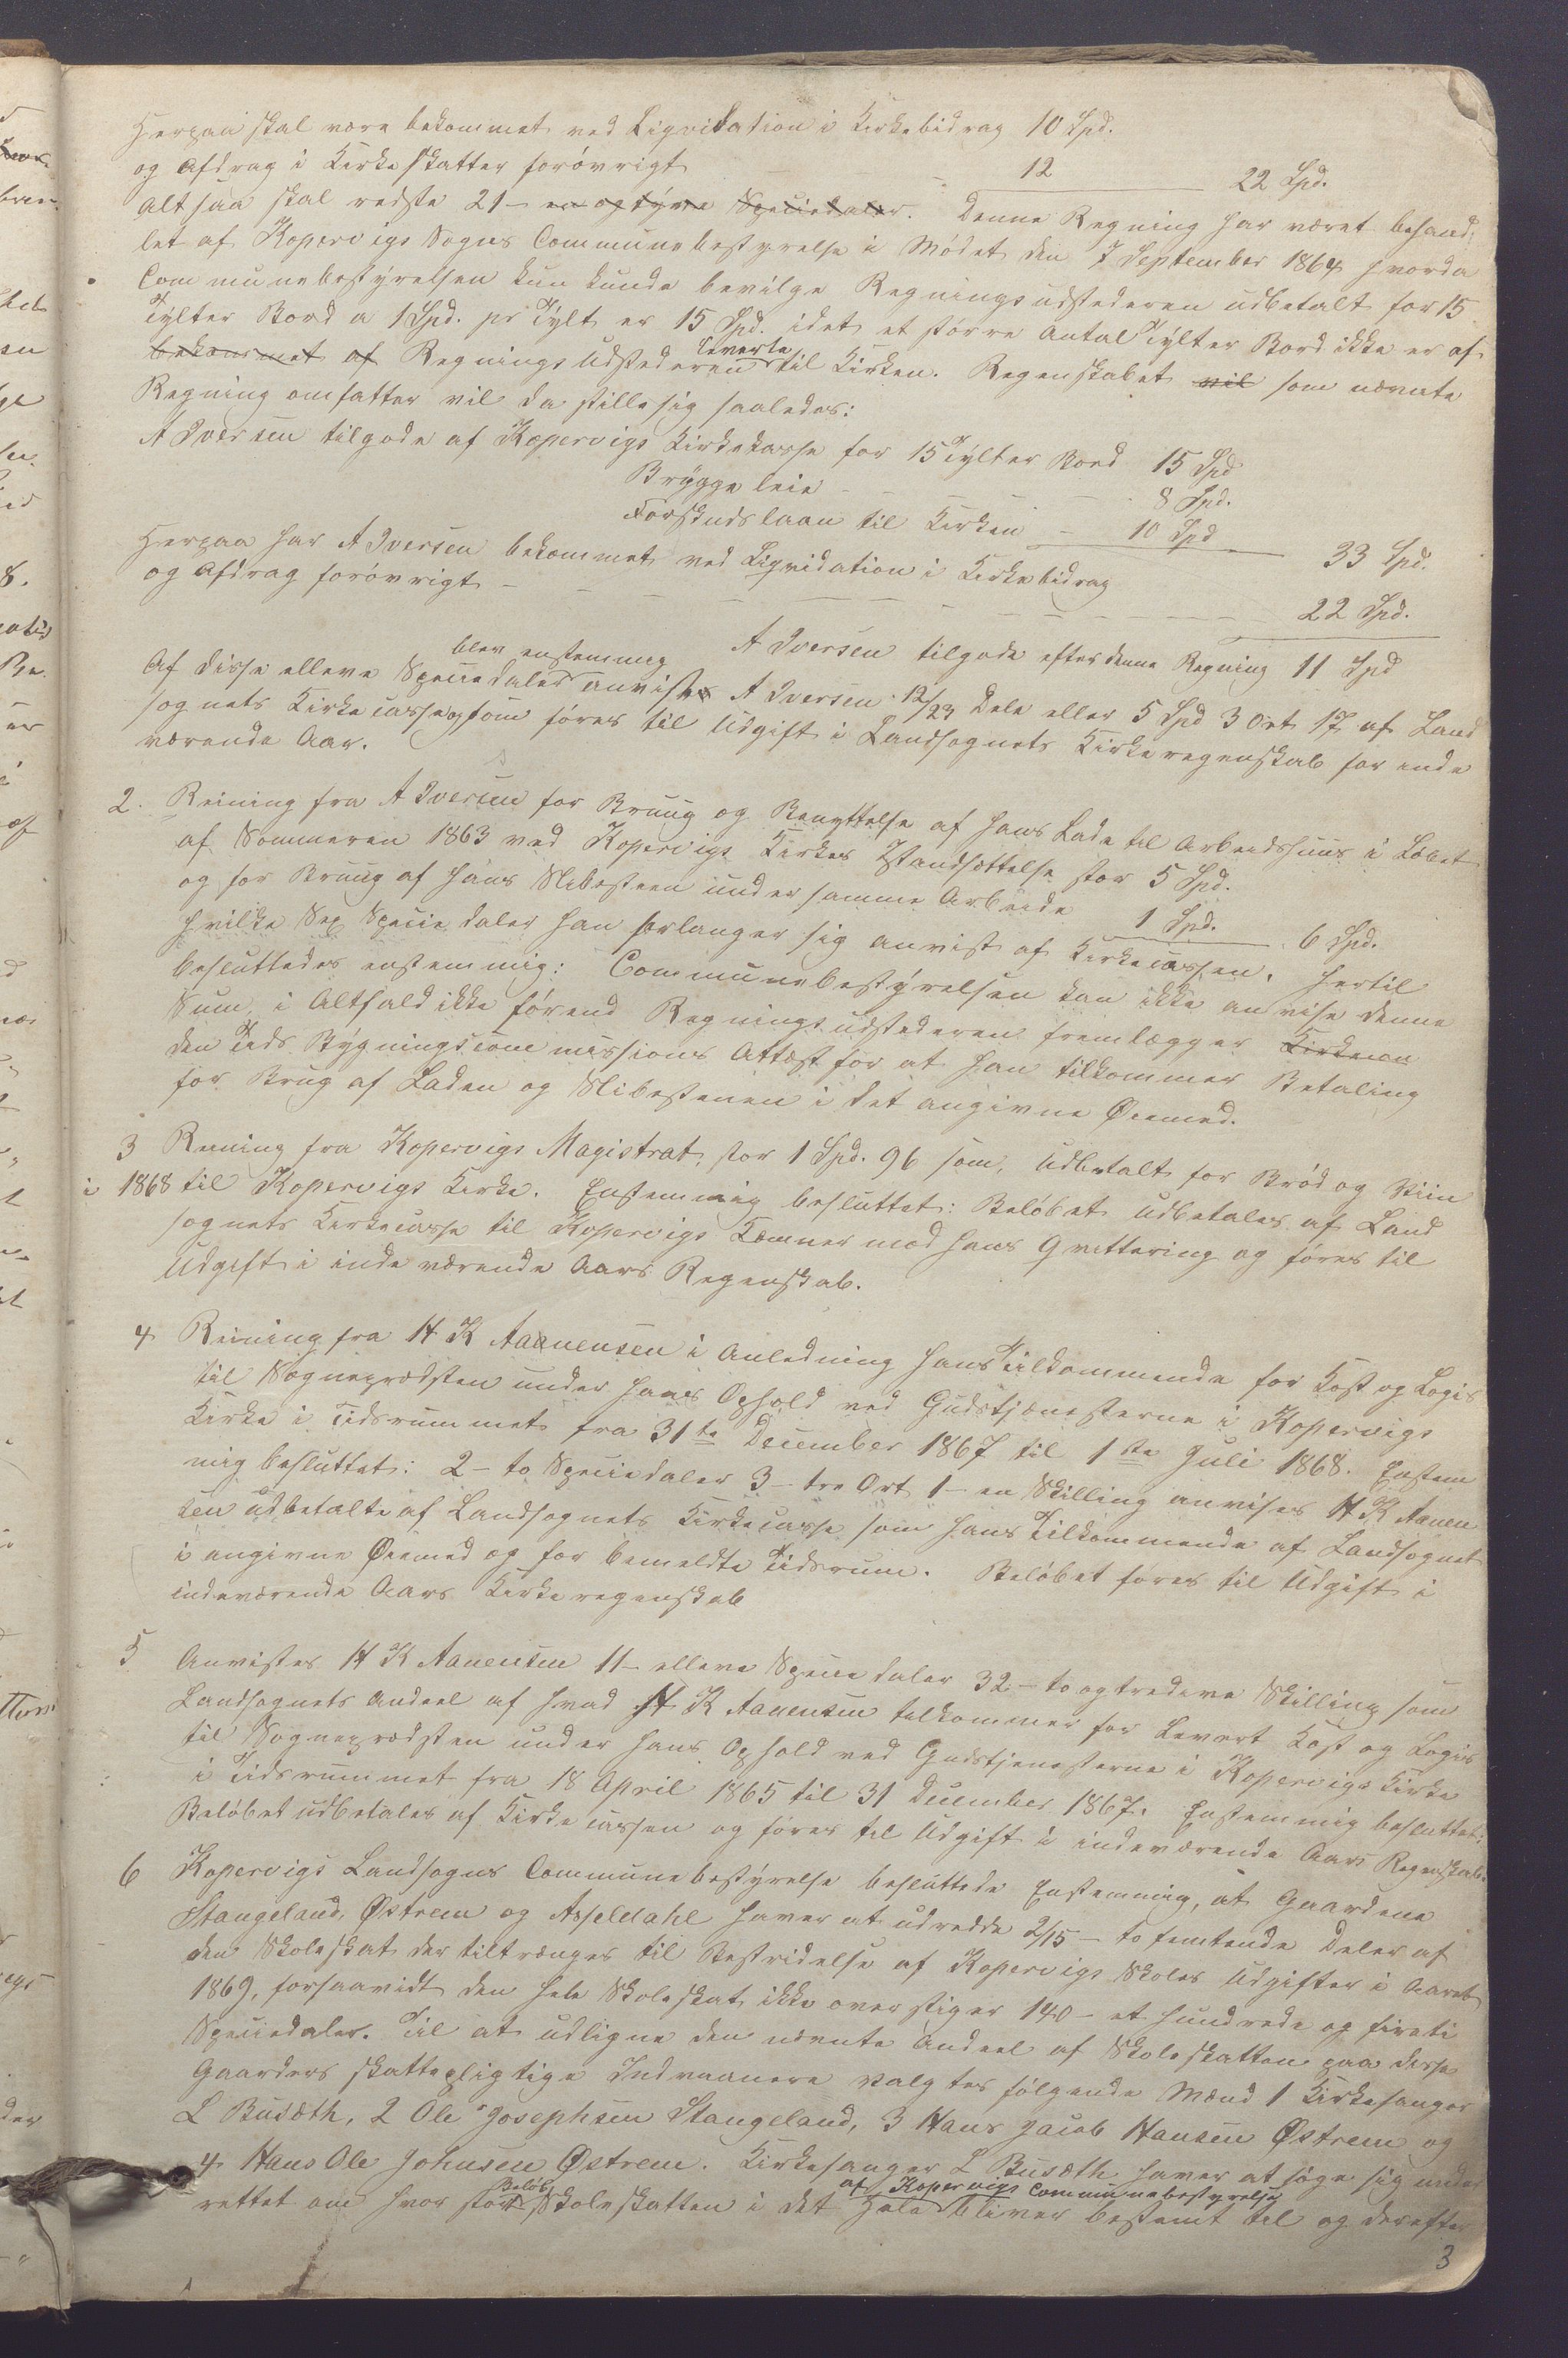 Herpaa skal være bekommet ved Liqvidation i Kirkebidrag 10 Spd.
og Afdrag i Kirkeskatter forövrigt 12 22 Spd.
Altsaa skal restere 21 - en og tyve Speciedaler. Denne Regning har været behand-
let af Kopervigs Sogns Communebestyrelse i Mödet den 7 September 1864 hvorda
Communebestyrelsen kun kunde bevilge Regningsudstederen udbetalt for 15
Tylter Bord a 1 Spd. pr Tylt er 15 Spd. idet et större Antal Tylter Bord ikke er af
bekommet af Regnings Udstederen leverte til Kirken. Regnskabet vil som nævnte
Regning omfatter vil da stille sig saaledes:
A Iversen tilgode af Kopervigs Kirkekasse for 15 Tylter Bord 15 Spd
Bryggeleie - - - - 8 Spd.
Forskudslaan til Kirken - 10 Spd 33 Spd.
Herpaa har A Iversen bekommet ved Liqvidation i Kirkebidrag
og Afdrag forövrigt - - - - 22 Spd.
A Iversen tilgode efter denne Regning 11 Spd
Af disse elleve Speciedaler blev enstemmig anvist A Iversen 12/23 Dele eller 5 Spd 3 Ort 17 af Land
sognets Kirkecasse, som föres til Udgift i Landsognets Kirkeregnskab for inde
værende Aar.
2. Reining fra A Iversen for Bruug og Benyttelse af hans Lade til Arbeidshuus i Löbet
af Sommeren 1863 ved Kopervigs Kirkes Istandsættelse stor 5 Spd.
og for Bruug af hans Slibesteen under samme Arbeide 1 Spd. 6 Spd.
hvilke Sex Speciedaler han forlanger sig anvist af Kirkecassen. Hertil
besluttedes enstemmig: Communebestyrelsen kan ikke anvise denne
Sum, i Altfald ikke förend Regningsudstederen fremlægger Kirkens
den Tids Bygningscommissions Attest for at han tilkommer Betaling
for Brug af Laden og Slibestenen i det angivne Öiemed.
3 Reining fra Kopervigs Magistrat, stor 1 Spd. 96 som, Udbetalt for Bröd og Viin
i 1868 til Kopervigs Kirke. Enstemmig besluttet: Belöbet udbetales af Land
sognets Kirkecasse til Kopervigs Kemner mod hans Qvittering og föres til
Udgift i indeværende Aars Regnskab.
4 Reining fra H K Aanensen i Anledning hans Tilkommende for Kost og Logis
til Sogneprædsten under hans Ophold ved Gudstjenesterne i Kopervigs
Kirke i Tidsrummet fra 31te December 1867 til 1ste Juli 1868. Enstem
mig besluttet: 2 - to Speciedaler 3 - tre Ort 1 - en Skilling anvises H K Aanen
sen udbetalte af Landsognets Kirkecasse som hans Tilkommende af Landsognet
i angivne Öiemed og for bemeldte Tidsrum. Belöbet föres til Udgift i
indeværende Aars Kirkeregnskab
5 Anvistes H K Aanensen 11 - elleve Speciedaler 32 - to og tredeve Skilling som
Landsognets Andeel af hvad H K Aanensen tilkommer for Levert Kost og Logis
til Sogneprædsten under hans Ophold ved Gudstjenesterne i Kopervigs Kirke
i Tidsrummet fra 18 April 1865 til 31 December 1867. Enstemmig besluttet:
Belöbet udbetales af Kirkecassen og föres til Udgift i indeværende Aars Regnskab.
6 Kopervigs Landsogns Communebestyrelse besluttede Enstemmig, at Gaardene
Stangeland, Østrem og Asseldahl haver at udredde 2/15 - to femtende Deler af
den Skoleskat der tiltrænges til Bestridelse af Kopervigs Skoles Udgifter i Aaret
1869, forsaavidt den hele Skoleskat ikke overstiger 140 - et hundrede og fireti
Speciedaler. Til at udligne den nævnte Andeel af Skoleskatten paa disse
Gaarders skattepligtige Indvaanere valgtes fölgende Mænd 1 Kirkesanger
L Busæth, 2 Ole Josephsen Stangeland, 3 Hans Jacob Hansen Østrem og
4 Hans Ole Johnsen Østrem. Kirkesanger L Busæth haver at söge sig under
rettet om hvor stort Belöb Skoleskatten i det Hele af Kopervigs Communebestyrelse bliver bestemt til og derefter
3